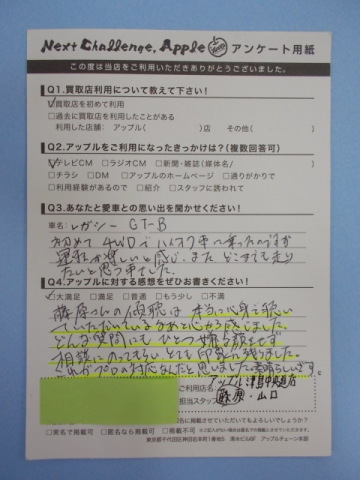 Next Challenge, Apple アンケート用紙
この度は当店をご利用いただきありがとうございました。
Q1.買取店利用について教えて下さい!
☑買取店を初めて利用
□過去に買取店を利用したことがある
利用した店舗: アップル( )店 その他( )
Q2.アップルをご利用になったきっかけは?(複数回答可)
☑テレビCM □ラジオCM □新聞・雑誌(媒体名/ )
□チラシ □DM □アップルのホームページ □通りがかりで
□利用経験があるので □紹介 □スタッフに誘われて
Q3.あなたと愛車との思い出を聞かせください!
車名: レガシー GT-B
初めて4WDでハイパワー車に乗ったのですが
運転が楽しいと感じ、また どこまでも走り
たいと思う車でした。
Q4.アップルに対する感想をぜひお書きください!
☑大満足 □満足 □普通 □もう少し □不満
藤原さんの傾聴は 本当に心身で聴い
ていただいているなあと心から感じました。
どんな質問にも ひとつ嫌な顔をせず
相談にのってもらい とても印象に残りました。
これがプロの対応なんだと思いました。素晴らしいです。
ご利用店名: アップル津島中央通店
担当スタッフ 藤原・山口
に掲載させていただいてもよろしいでしょうか?
□実名で掲載可 □匿名なら掲載可 □掲載不可
東京都千代田区神田岩本町1番地5 清水ビル6F アップルチェーン本部